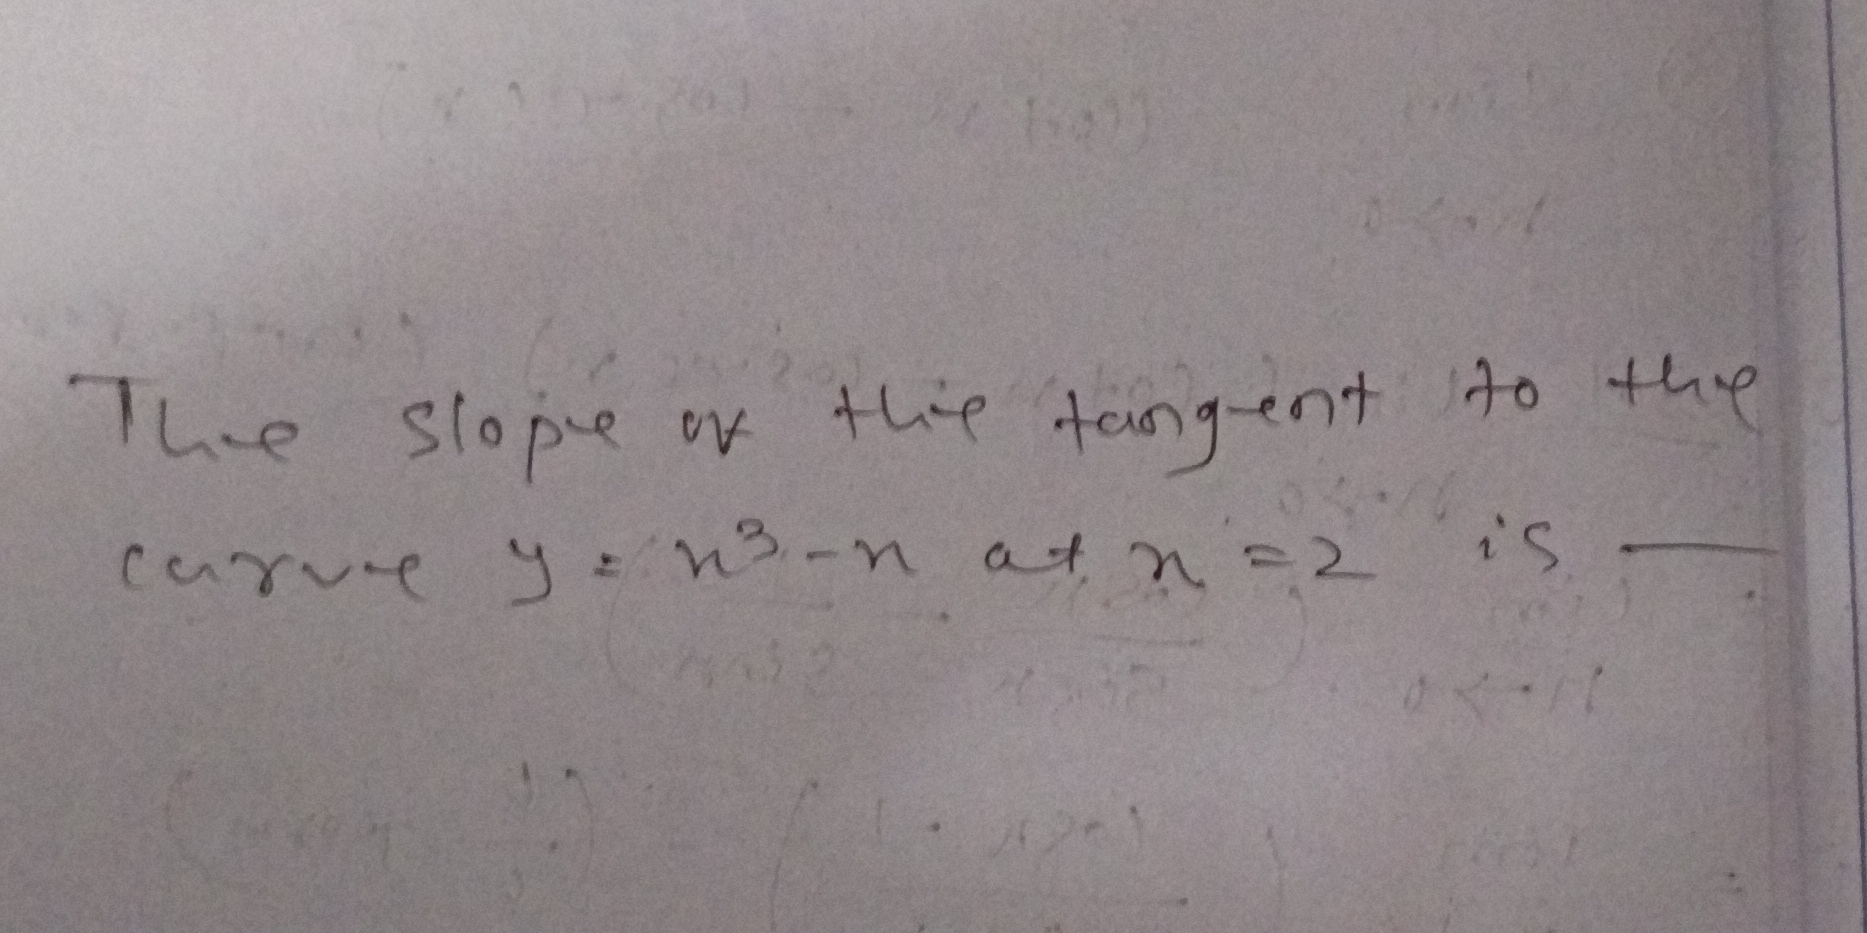 The slope of the tangent to the
curve y = x³-x at x = 2 is —